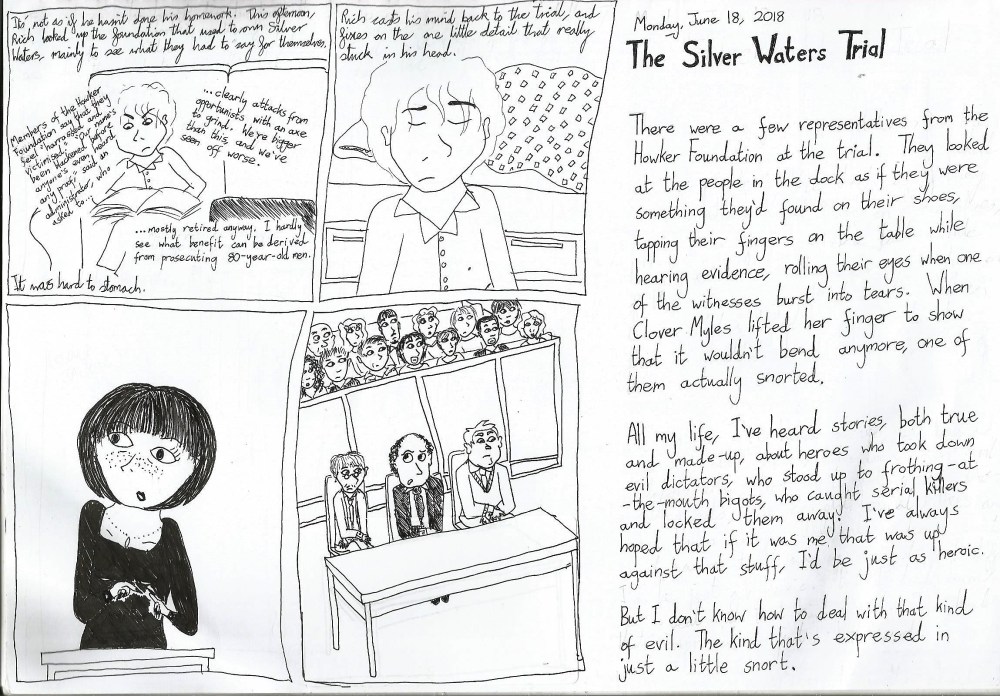 It's not as if he hasn't done his homework. This afternoon,
Rich looked up the foundation that used to own Silver
Waters, mainly to see what they had to say for themselves.
Members of the Howker
Foundation say that they
feel "harrassed and
victimised." "Our name's
been blackened before
anyone's even heard
any proof," said an
administrator, who
asked to...
...clearly attacks from
opportunists with an axe
to grind. We're bigger
than this, and we've
seen off worse."
...mostly retired anyway. I hardly
see what benefit can be derived
from prosecuting 80-year-old men.
It was hard to stomach.
Rich casts his mind back to the trial, and
fixes on the one little detail that really
stuck in his head.
Monday, June 18, 2018
The Silver Waters Trial
There were a few representatives from the
Howker Foundation at the trial. They looked
at the people in the dock as if they were
something they'd found on their shoes,
tapping their fingers on the table while
hearing evidence, rolling their eyes when one
of the witnesses burst into tears. When
Clover Myles lifted her finger to show
that it wouldn't bend anymore, one of
them actually snorted.
All my life, I've heard stories, both true
and made-up, about heroes who took down
evil dictators, who stood up to frothing-at
-the-mouth bigots, who caught serial killers
and locked them away. I've always
hoped that if it was me that was up
against that stuff, I'd be just as heroic.
But I don't know how to deal with that kind
of evil. The kind that's expressed in
just a little snort.